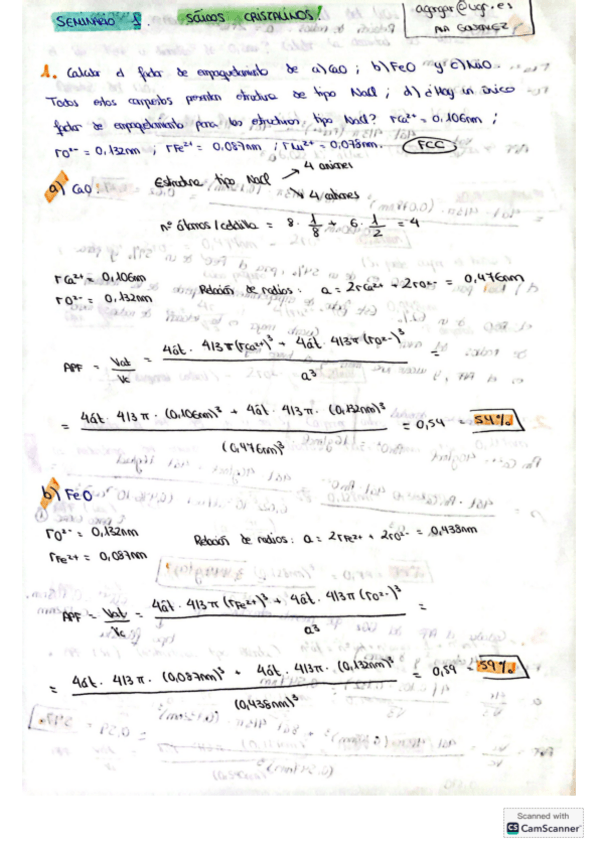 SEMINARIO 1. SÓLIDOS CRISTALINOS!
agargar@ugr.es
1. Calcular el factor de empaquetamiento de a) CaO ; b) FeO y c) NiO.
Todos estos compuestos presentan estructura de tipo NaCl ; d) ¿Hay un único
factor de empaquetamiento para las estructuras, tipo NaCl? rCa²⁺ = 0,106nm ;
rO²⁻ = 0,132nm ; rFe²⁺ = 0,087nm ; = 0,078nm. FCC
a) CaO: Estructura tipo NaCl → 4 aniones
↘ 4 cationes
nº átomos/celdilla = 8 · 1/8 + 6 · 1/2 = 4
rCa²⁺ = 0,106nm
rO²⁻ = 0,132nm
Relación de radios : a = 2rCa²⁺ + 2rO²⁻ = 0,476nm
APF = Vat/Vc = 4át · 4/3 π (rCa²⁺)³ + 4át · 4/3 π (rO²⁻)³ / a³ =
= 4át · 4/3 π · (0,106nm)³ + 4át · 4/3 π · (0,132nm)³ / (0,476nm)³ = 0,54 = 54%
b) FeO
rO²⁻ = 0,132nm
rFe²⁺ = 0,087nm
Relación de radios : a = 2rFe²⁺ + 2rO²⁻ = 0,438nm
APF = Vat/Vc = 4át · 4/3 π (rFe²⁺)³ + 4át · 4/3 π (rO²⁻)³ / a³ =
= 4át · 4/3 π · (0,087nm)³ + 4át · 4/3 π · (0,132nm)³ / (0,438nm)³ = 0,59 = 59%
Scanned with
CS CamScanner